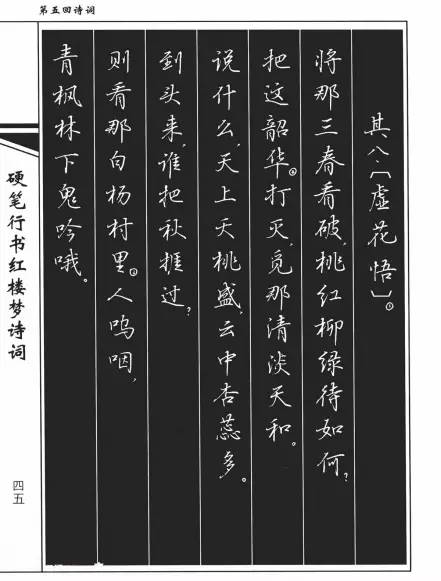 第五回诗词
其八、〔虚花悟〕
将那三春看破,桃红柳绿待如何?
把这韶华打灭,觅那清淡天和。
说什么,天上夭桃盛,云中杏蕊多。
到头来,谁把秋捱过?
则看那白杨村里人呜咽,
青枫林下鬼吟哦。
硬笔行书红楼梦诗词
四五